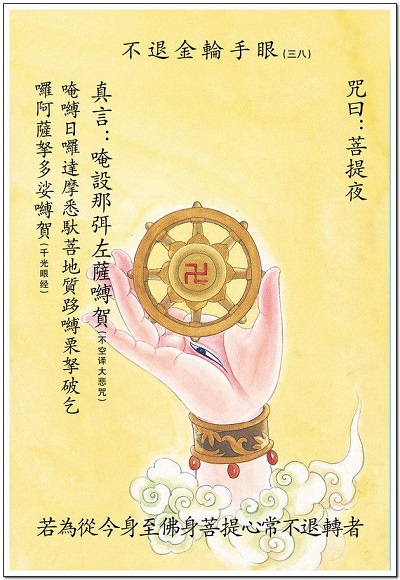 不退金輪手眼(三八)
咒曰：菩提夜
真言：唵設那弭左薩嚩賀(不空译大悲咒)
唵嚩日囉達摩悉馱菩地質跢嚩栗拏破乞
囉阿薩拏多娑嚩賀(千光眼经)
若為從今身至佛身菩提心常不退轉者